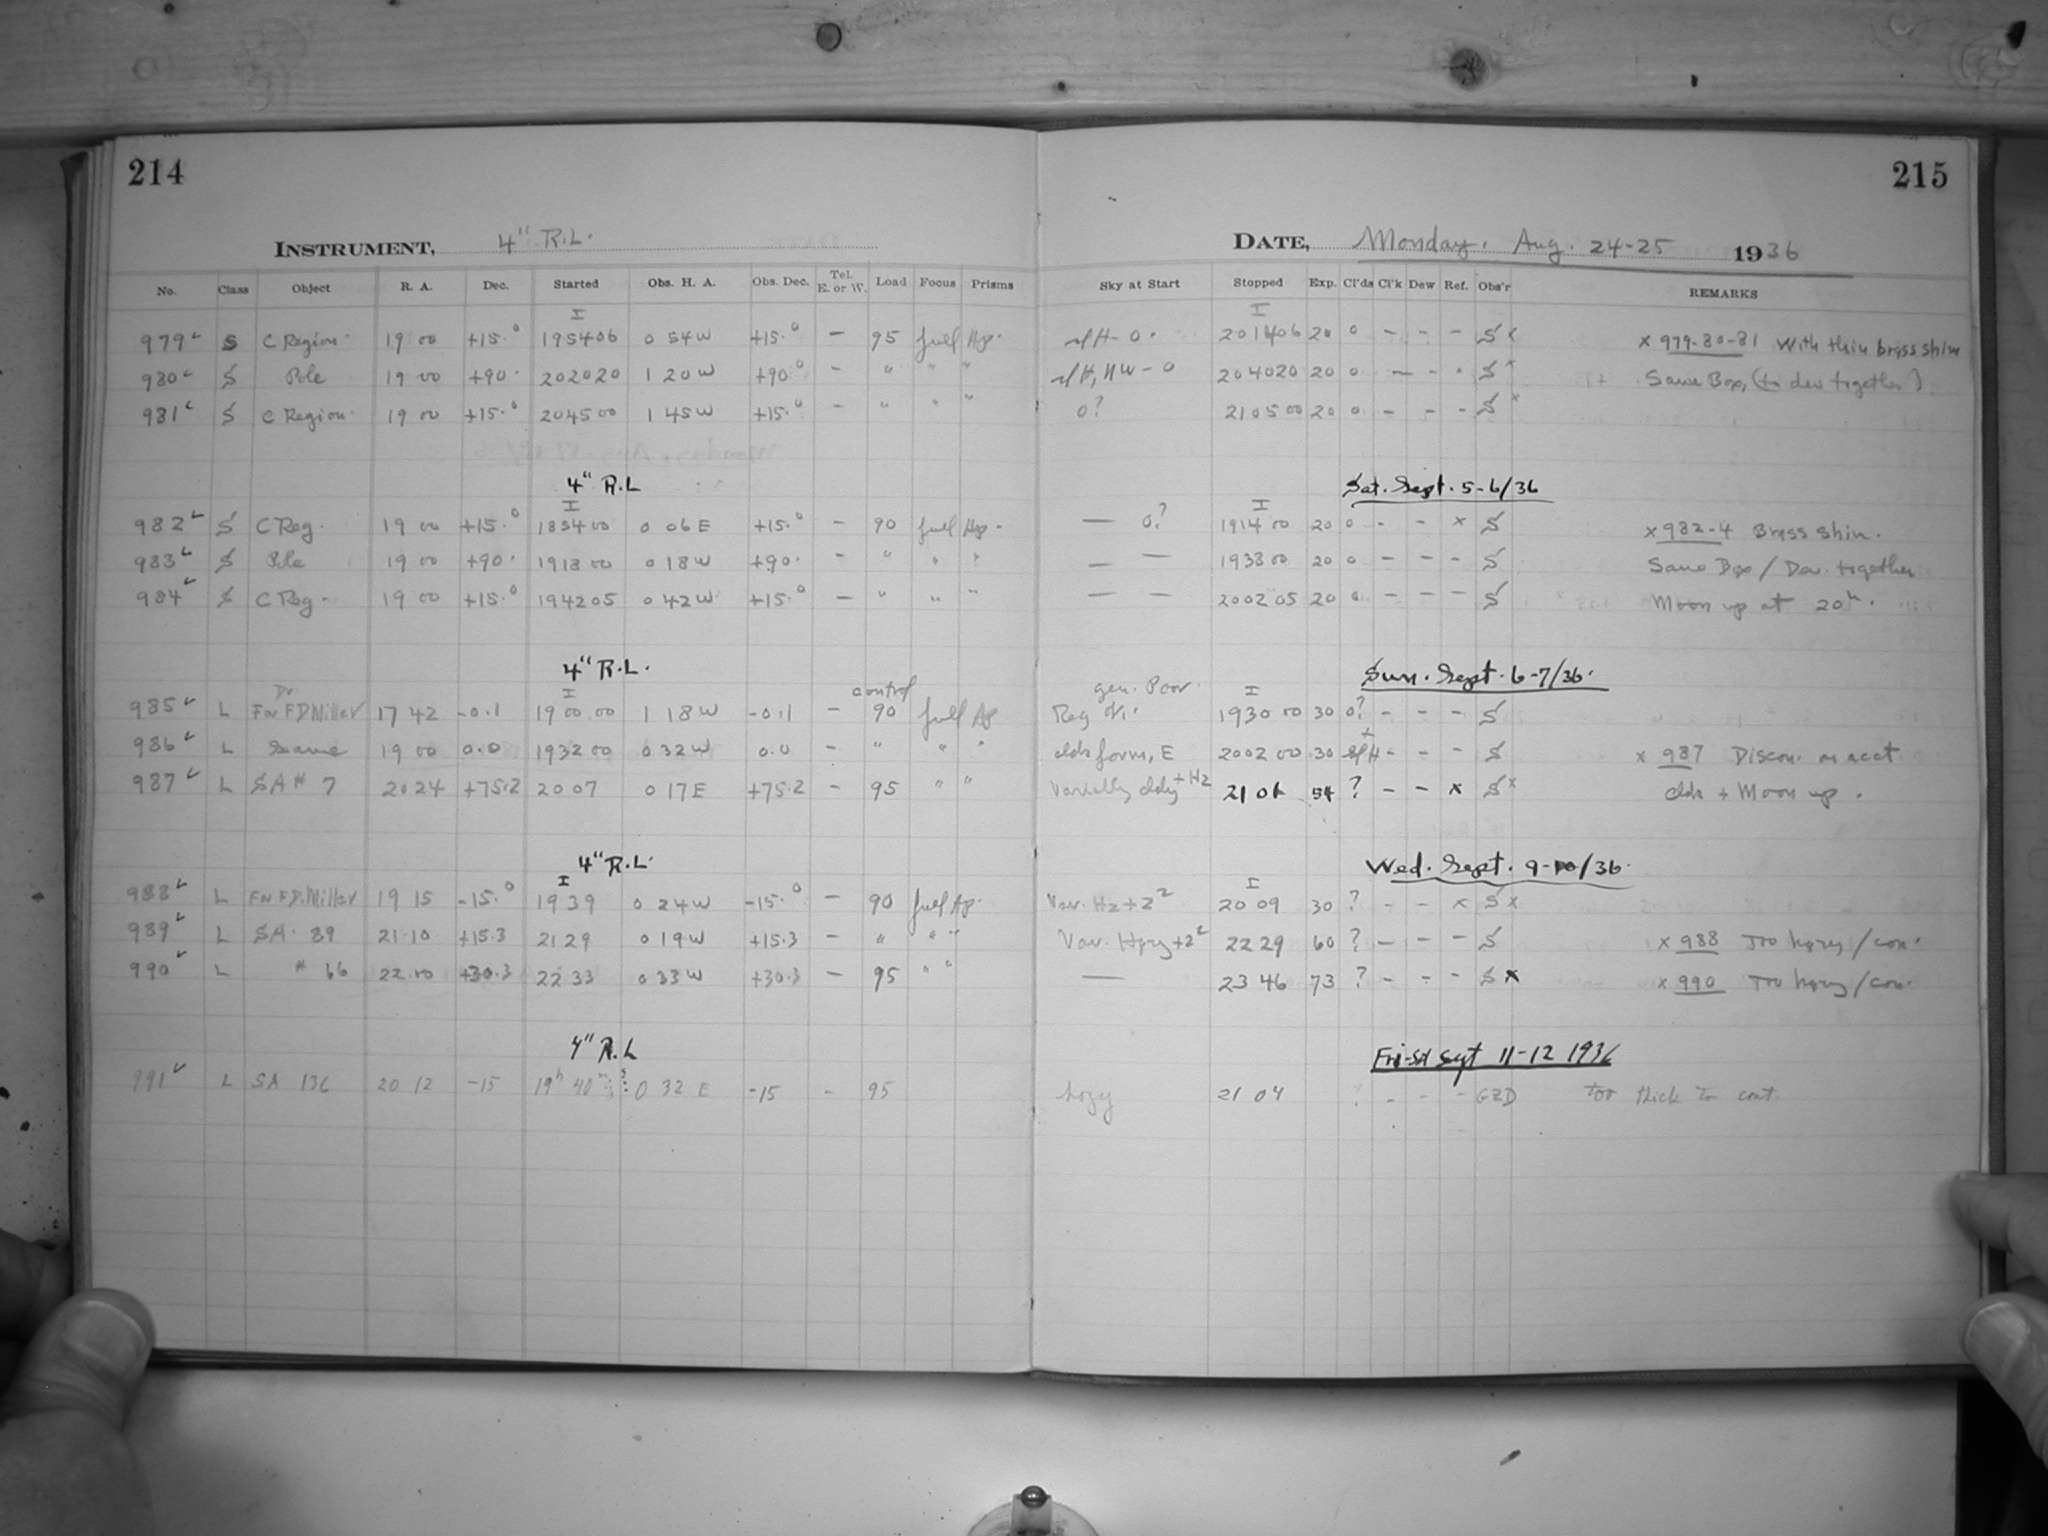 214
215
INSTRUMENT, 4" R.L.
DATE, Monday, Aug. 24-25 1936
No. Class Object R. A. Dec. Started Obs. H. A. Obs. Dec. Tel. E. or W. Load Focus Prisms Sky at Start Stopped Exp. Cl'ds Cl'k Dew Ref. Obs'r REMARKS
I I
979 S C Region. 19 00 +15.° 195406 0 54W +15.° - 95 full Ap. 0. 201406 20 0 - - - S x x 979-80-81 With thin brass shim
980 S Pole 19 00 +90. 202020 1 20W +90° - " " " NW - 0 204020 20 0 - - . S x Same Box, (to dev together)
981 S C Region. 19 00 +15.° 204500 1 45W +15.° - " " " 0? 210500 20 0 - - - S x
4" R.L Sat. Sept. 5-6/36
I I
982 S C Reg. 19 00 +15.° 185400 0 06E +15.° - 90 full Ap. — 0? 191400 20 0 - - x S x 982-4 Brass shim.
983 S Pole 19 00 +90. 191800 0 18W +90. - " " " — — 193800 20 0 - - - S Same Box / Dev. together
984 S C Reg. 19 00 +15.° 194205 0 42W +15.° - " " " — — 200205 20 0 - - - S Moon up at 20h.
4" R.L. Sun. Sept. 6-7/36.
Dr I control gen. Poor. I
985 L For F.D. Miller 17 42 -0.1 19 00.00 1 18W -0.1 - 90 full Ap Reg 1930 00 30 0? - - - S
986 L Same 19 00 0.0 1932 00 0 32W 0.0 - " " " clds form, E 2002 00 30 - - - S x 987 Discon. on acct
987 L SA # 7 20 24 +75.2 20 07 0 17E +75.2 - 95 " " Variably cldy + Hz 21 01 54 ? - - x S x clds + Moon up.
4" R.L. Wed. Sept. 9-10/36.
I I
988 L For F.D. Miller 19 15 -15.° 19 39 0 24W -15.° - 90 full Ap. Var. Hz + 2² 20 09 30 ? - - x S x
989 L SA. 89 21 10 +15.3 21 29 0 19W +15.3 - " " " Var. Hazy + 2² 22 29 60 ? - - - S x 988 Too hazy / con.
990 L # 66 22 10 +30.3 22 33 0 33W +30.3 - 95 " " — 23 46 73 ? - - - S x x 990 Too hazy / con.
4" R.L Fri-Sat Sept 11-12 1936
991 L SA 136 20 12 -15 19h 40m 0 32 E -15 - 95 hazy 21 04 ? - - - GZD too thick to cont.